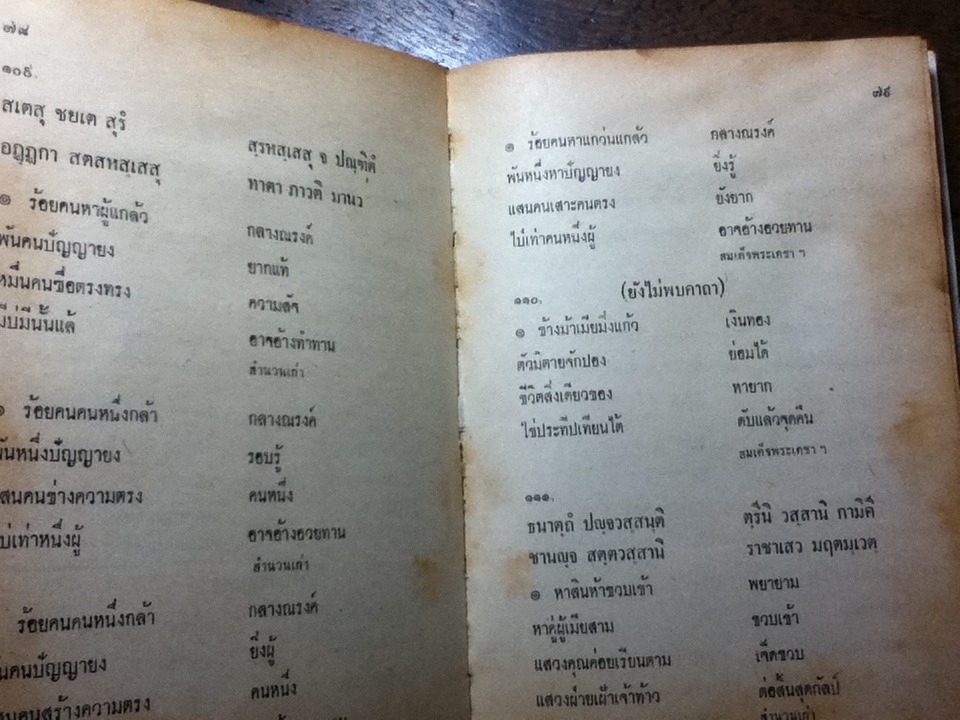 ๗๘
๑๐๙.
สเตสุ ชยเต สุรํ สรหสฺเสสุ จ ปณฺฑิตํ
อฏฺฏกา สตสหสฺเสสุ ทาตา ภาวติ มานว
๑ ร้อยคนหาผู้แกล้ว กลางณรงค์
พันคนปัญญายง ยากแท้
หมื่นคนซื่อตรงทรง ความสัจ
มีบ่มีนั้นแล้ อาจอ้างทำทาน
สำนวนเก่า
๑ ร้อยคนคนหนึ่งกล้า กลางณรงค์
พันหนึ่งปัญญายง รอบรู้
แสนคนช่างความตรง คนหนึ่ง
บ่เท่าหนึ่งผู้ อาจอ้างอวยทาน
สำนวนเก่า
ร้อยคนคนหนึ่งกล้า กลางณรงค์
พันคนปัญญายง ยิ่งผู้
แสนคนสร้างความตรง คนหนึ่ง
๗๙
๑ ร้อยคนหาแกว่นแกล้ว กลางณรงค์
พันหนึ่งหาปัญญายง ยิ่งรู้
แสนคนเสาะคนตรง ยังยาก
ไป่เท่าคนหนึ่งผู้ อาจอ้างอวยทาน
สมเด็จพระเดชา ฯ
๑๑๐. (ยังไม่พบคาถา)
๑ ช้างม้าเมียมิ่งแก้ว เงินทอง
ตัวมิตายจักปอง ย่อมได้
ชีวิตสิ่งเดียวของ หายาก
ใช่ประทีปเทียนไต้ ดับแล้วจุดคืน
สมเด็จพระเดชา ฯ
๑๑๑.
ธนาตฺถํ ปญฺจวสฺสนฺติ ตฺรีนิ วสฺสานิ กามิคี
ชานญฺจ สตฺตวสฺสานิ ราชาเสว มฤตมฺเวตฺ
๑ หาสินห้าขวบเข้า พยายาม
หาคู่ผู้เมียสาม ขวบเข้า
แสวงคุณค่อยเรียนตาม เจ็ดขวบ
แสวงฝ่ายเฝ้าเจ้าท้าว ต่อสิ้นสุดกัลป์
สำนวนเก่า